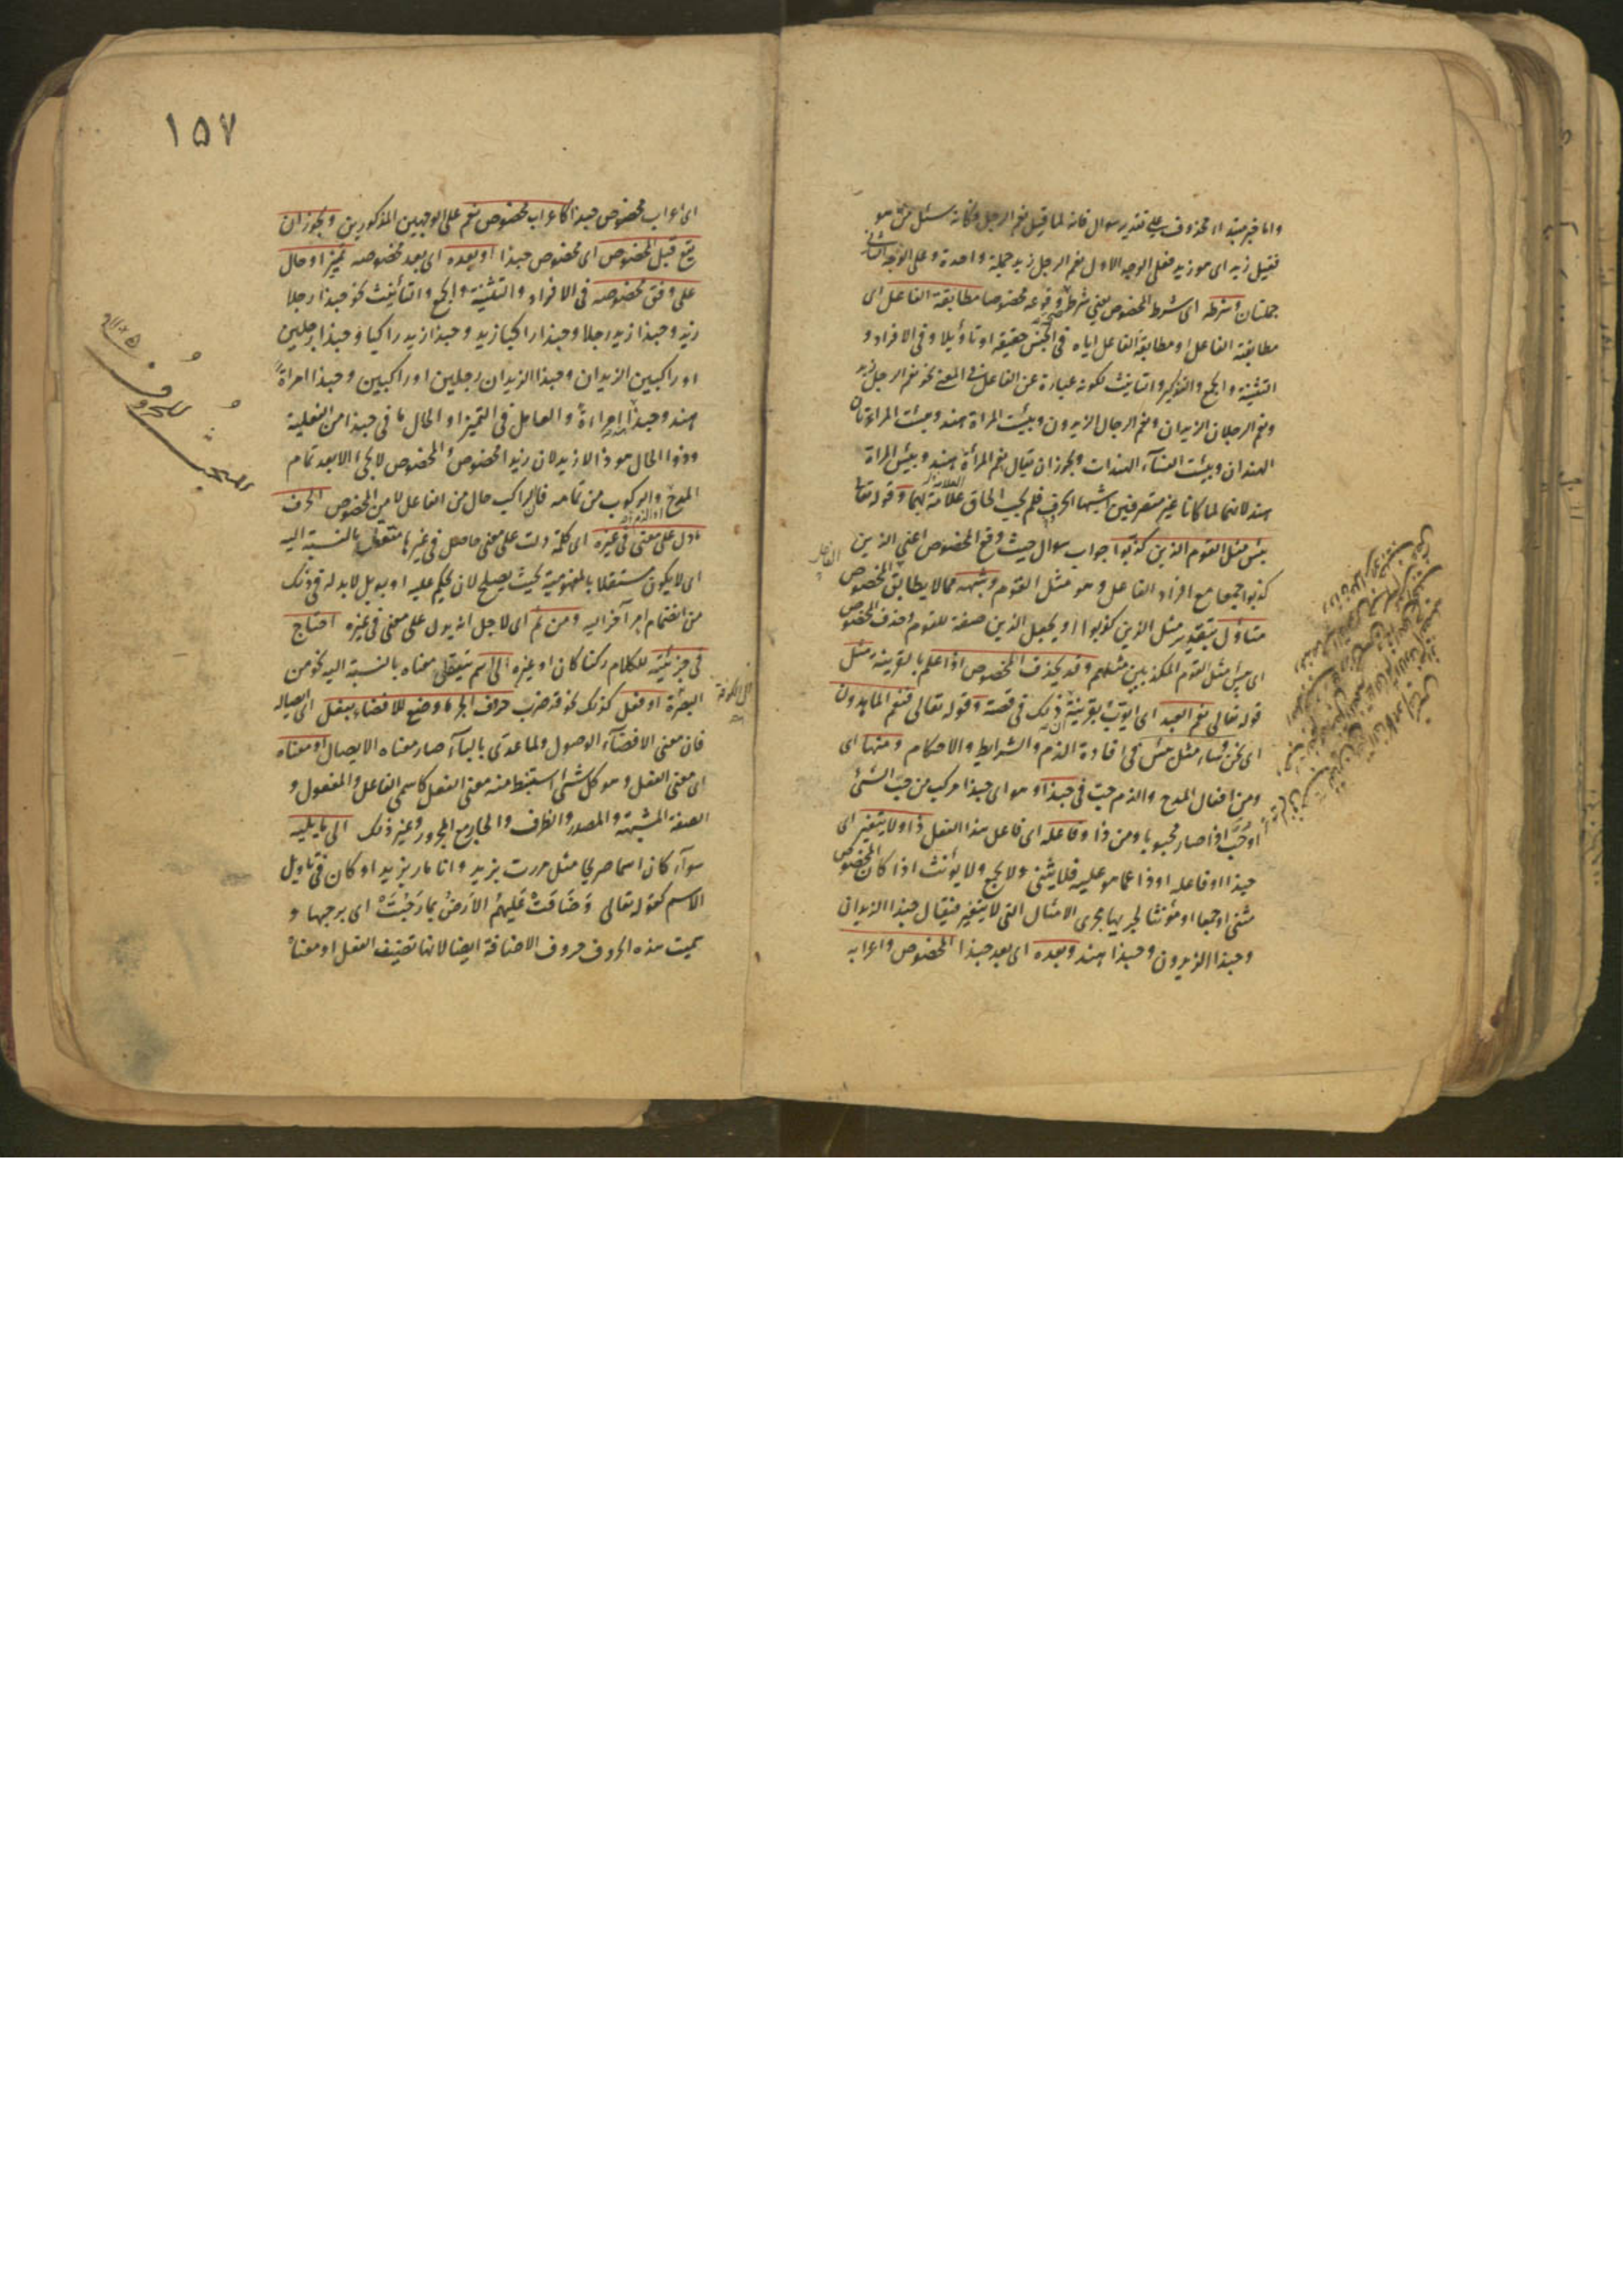 واما خبر مبتداء محذوف على تقدير سوال فانه لما قيل نعم الرجل فكانه سئل من هو
فقيل زيد اى هو زيد فعلى الوجه الاول نعم الرجل زيد جملة واحدة وعلى الوجه الثانى
جملتان وشرطه اى شرط المخصوص يعنى شرط وقوعه مخصوصا مطابقة الفاعل اى
مطابقته الفاعل او مطابقة الفاعل اياه فى الجنس حقيقة او تأويلا وفى الافراد و
التثنية والجمع والتذكير والتانيث لكونه عبارة عن الفاعل فى المعنى نحو نعم الرجل زيد
ونعم الرجلان الزيدان ونعم الرجال الزيدون وبئست المراة هند وبئست المراءتان
الهندان وبئست النسآء الهندات ويجوز ان يقال نعم المرأة هند وبئس المراة
هند لانهما لما كانا غير متصرفين اشبها الحرف فلم يجب الحاق علامة بهما وقوله تعالى
بئس مثل القوم الذين كذبوا جواب سوال حيث وقع المخصوص اعنى الذين
كذبوا جمعا مع افراد الفاعل وهو مثل القوم وشبهه مما لا يطابق المخصوص
متاول بتقدير مثل الذين كذبوا او يجعل الذين صفة للقوم وحذف المخصوص
اى بئس مثل القوم المكذبين مثلهم وقد يحذف المخصوص اذا علم بالقرينة مثل
قوله تعالى نعم العبد اى ايوب بقرينة ان ذلك فى قصته وقوله تعالى فنعم الماهدون
اى نحن وساء مثل بئس فى افادة الذم والشرايط والاحكام ومنها اى
ومن افعال المدح والذم حبّ فى حبذا وهو اى حبذا مركب من حبّ الشئ
او حُبَّ اذا صار محبوبا ومن ذا وفاعله اى فاعل هذا الفعل ذا ولا يتغير اى
حبذا او فاعله او ذا عما هو عليه فلا يثنى ولا يجمع ولا يونث اذا كان المخصوص
مثنى او جمعا او مؤنثا لجريها مجرى الامثال التى لا يتغير فيقال حبذا الزيدان
وحبذا الزيدون وحبذا هند وبعده اى بعد حبذا المخصوص واعرابه
١٥٧
اى اعراب مخصوص حبذا كاعراب مخصوص نعم على الوجهين المذكورين ويجوز ان
يقع قبل المخصوص اى مخصوص حبذا او بعده اى بعد مخصوصه تميز او حال
على وفق مخصوصه فى الافراد والتثنية والجمع والتأنيث نحو حبذا رجلا
زيد وحبذا زيد رجلا وحبذا راكبا زيد وحبذا زيد راكبا وحبذا رجلين
او راكبين الزيدان وحبذا الزيدان رجلين او راكبين وحبذا امراة
هند وحبذا هند امراءة والعامل فى التميز او الحال ما فى حبذا من الفعلية
وذو الحال هو ذا لا زيد لان زيد المخصوص والمخصوص لا يجئ الا بعد تمام
المدح والركوب من تمامه فالراكب حال من الفاعل لا من المخصوص الحرف
ما دل على معنى فى غيره اى كلمة دلت على معنى حاصل فى غيرها متعقل بالنسبة اليه
اى لا يكون مستقلا بالمفهومية بحيث يصلح لان يحكم عليه او به بل لا بد له فى ذلك
من انضمام امر آخر اليه ومن ثم اى لاجل انه يدل على معنى فى غيره احتاج
فى جزئيته للكلام ركنا كان او غيره الى اسم يتعقل معناه بالنسبة اليه نحو من
البصرة او فعل كذلك نحو قد ضرب حرف الجر ما وضع للافضاء بفعل اى ايصاله
فان معنى الافضآء الوصول ولما عدى بالبآء صار معناه الايصال او معناه
اى معنى الفعل وهو كل شئ استنبط منه معنى الفعل كاسمى الفاعل والمفعول و
الصفة المشبهة والمصدر والظرف والجار مع المجرور وغير ذلك الى ما يليه
سوآء كان اسما صريحا مثل مررت بزيد وانا مار بزيد او كان فى تاويل
الاسم كقوله تعالى وَضَاقَتْ عَلَيهِمُ الاَرْضُ بِمَا رَحُبَتْ اى برحبها و
سميت هذه الحروف حروف الاضافة ايضا لانها تضيف الفعل او معناه
مبحث
الحروف